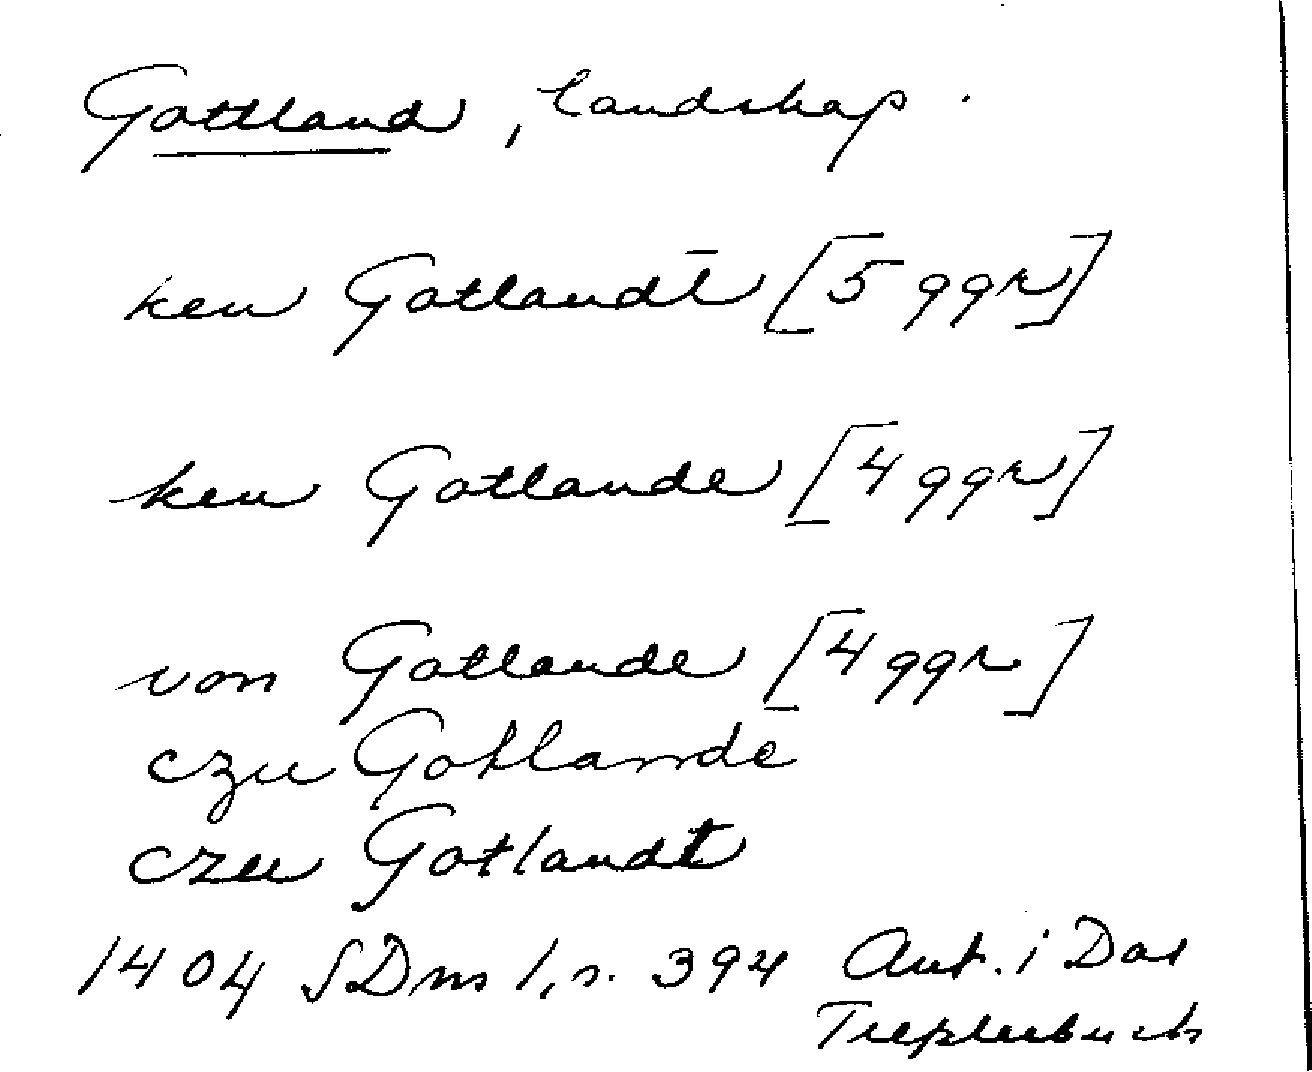 Gottland, landskap.
ken Gotlandt [5 ggr]
ken Gotlande [4 ggr]
von Gotlande [4 ggr]
czu Gotlande
czu Gotlandt
1404 SDns 1, s. 394 Ant. i Das
Treßlerbuch